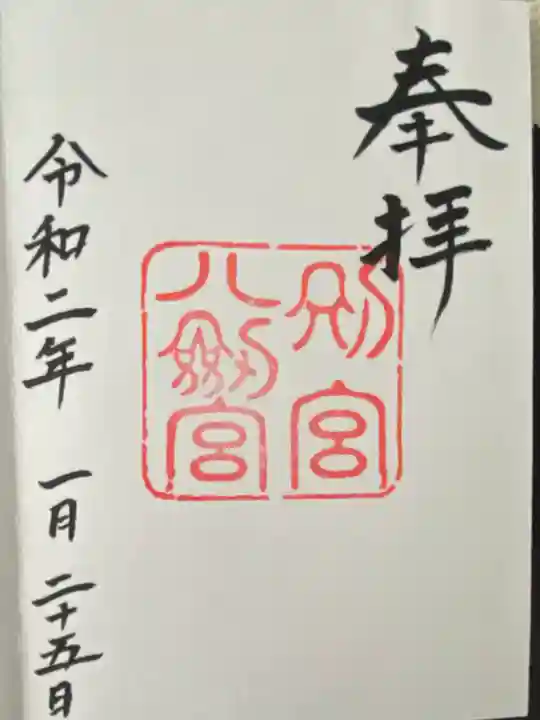 奉拝
別宮
八剱宮
令和二年 一月 二十五日